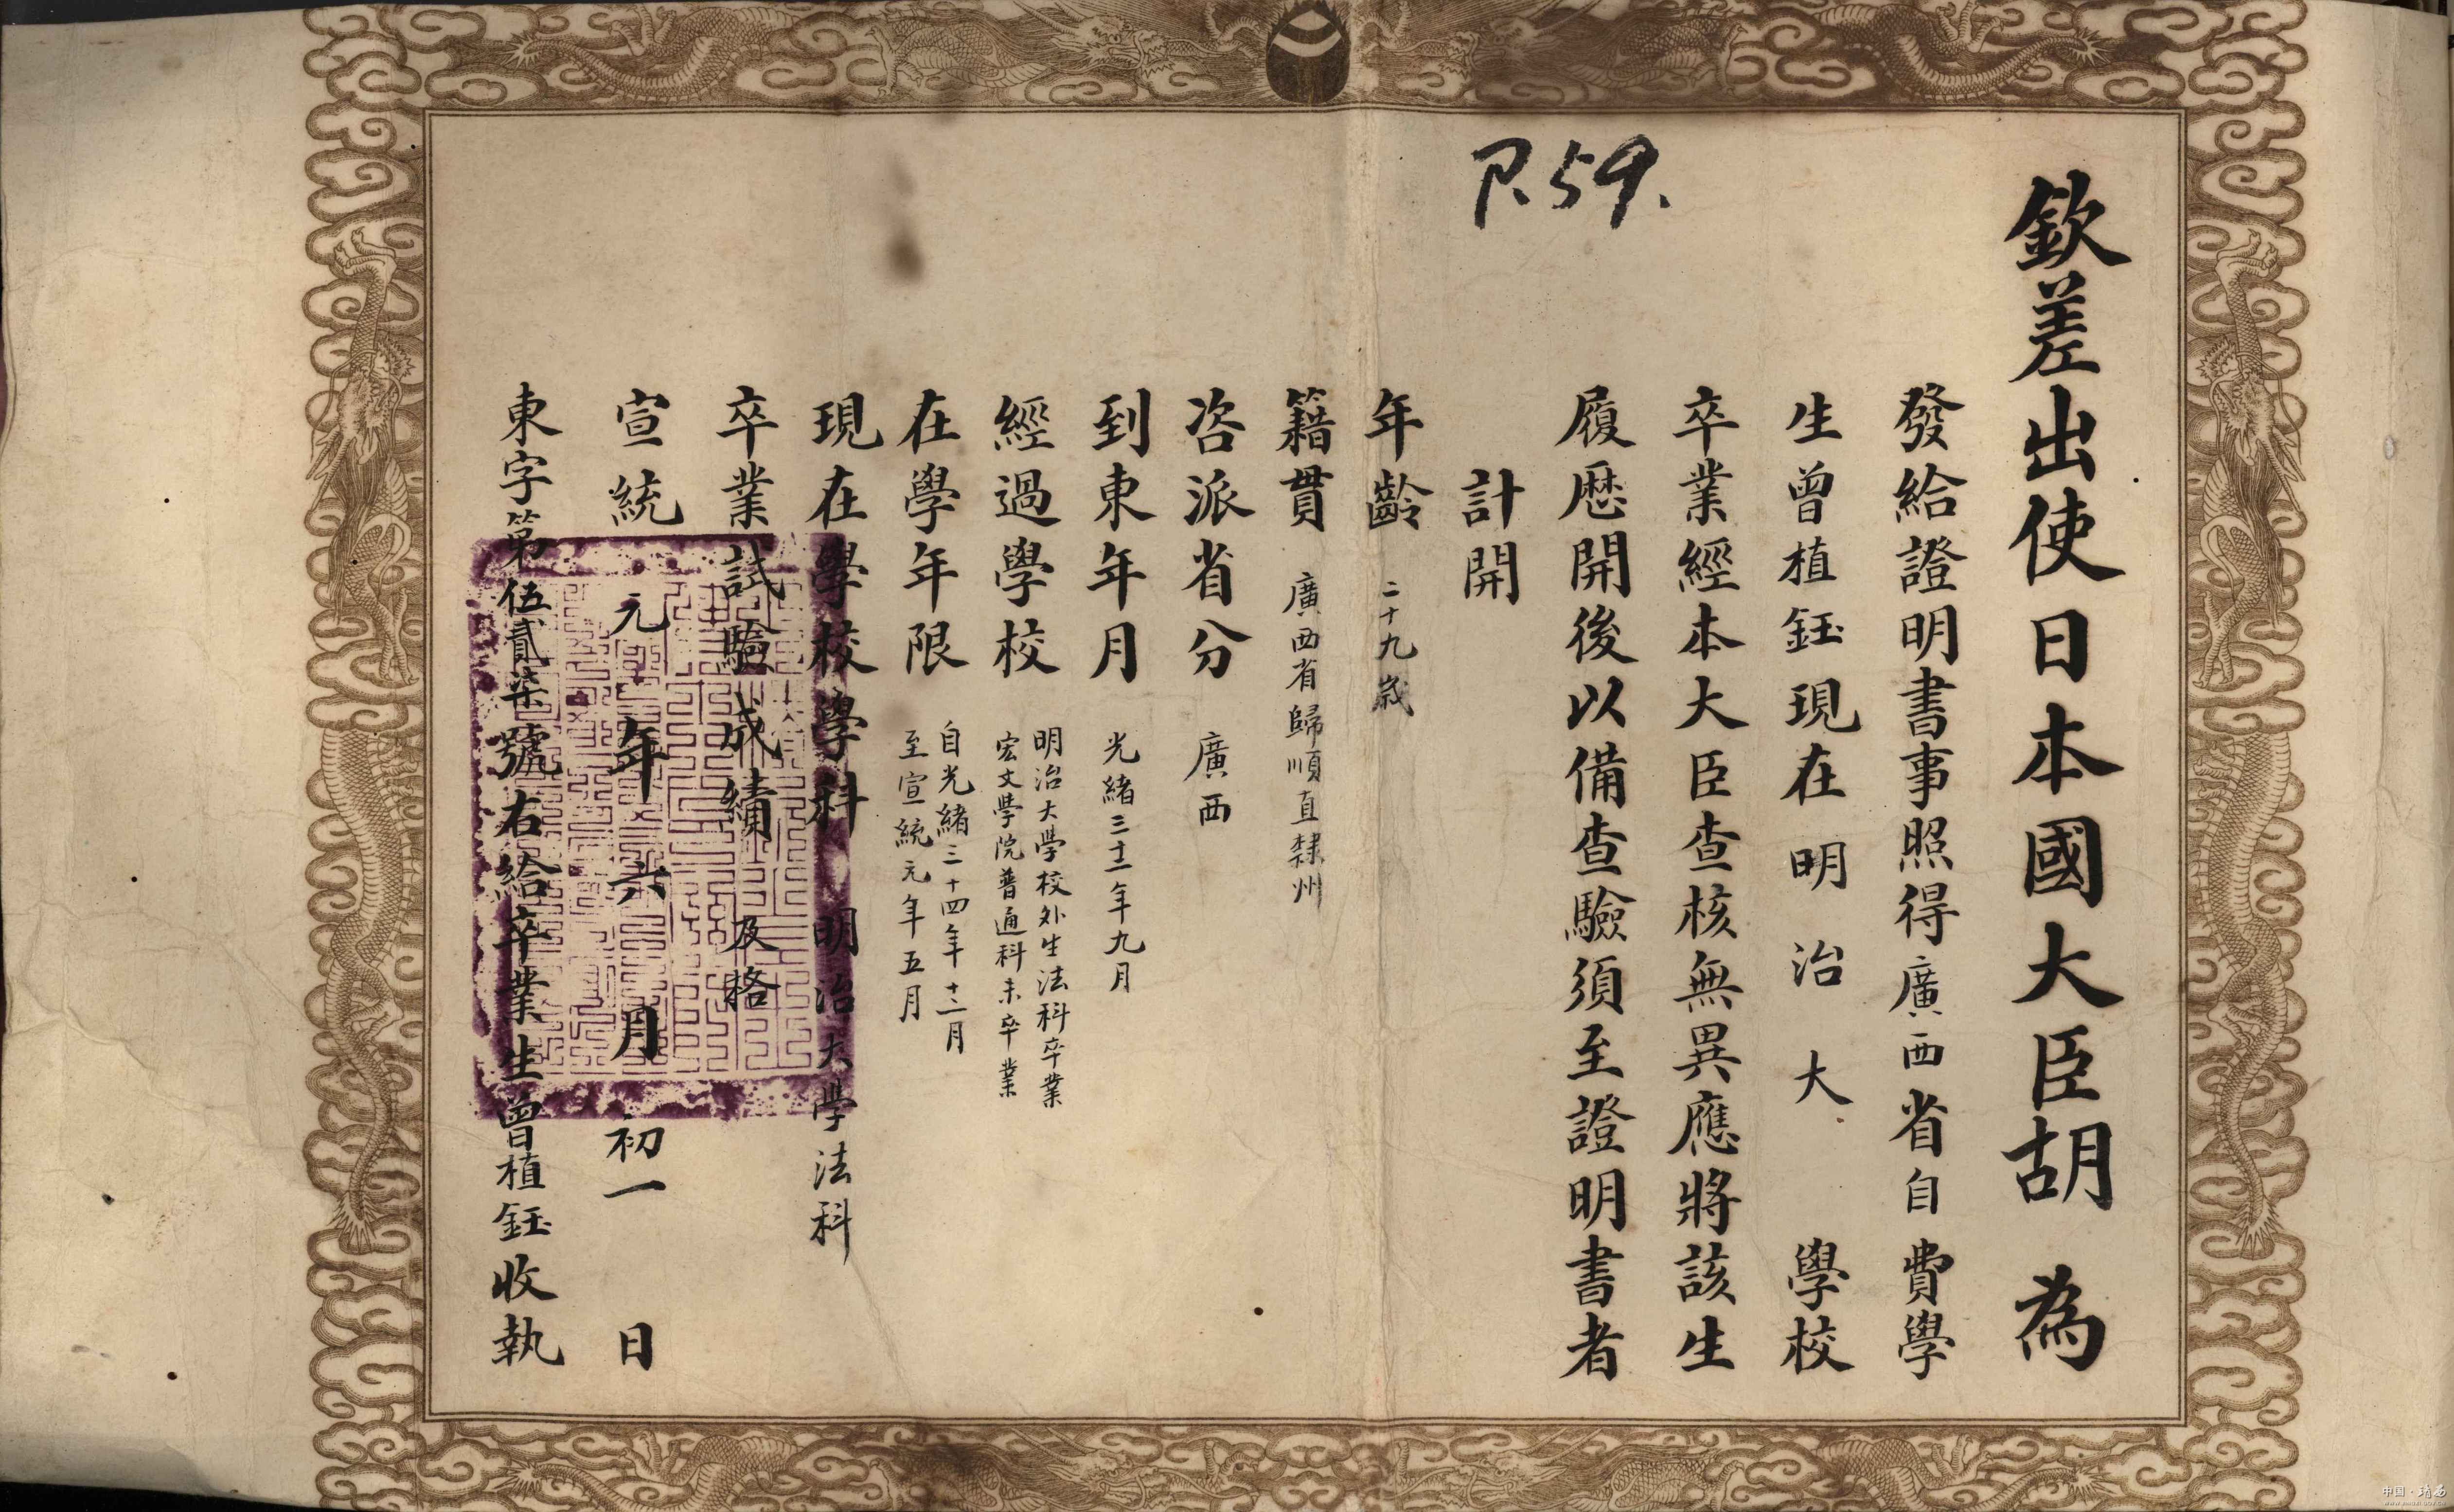 欽差出使日本國大臣胡 為
發給證明書事照得廣西省自費學
生曾植鈺現在明治大學校
卒業經本大臣查核無異應將該生
履歷開後以備查驗須至證明書者
計開
年齡 二十九歲
籍貫 廣西省歸順直隸州
咨派省分 廣西
到東年月 光緒三十二年九月
經過學校 明治大學校外生法科卒業
宏文學院普通科未卒業
在學年限 自光緒三十四年十二月
至宣統元年五月
現在學校學科 明治大學法科
卒業試驗成績 及格
宣統元年六月初一日
東字第伍貳柒號右給卒業生曾植鈺收執
P.59.
中国·靖西